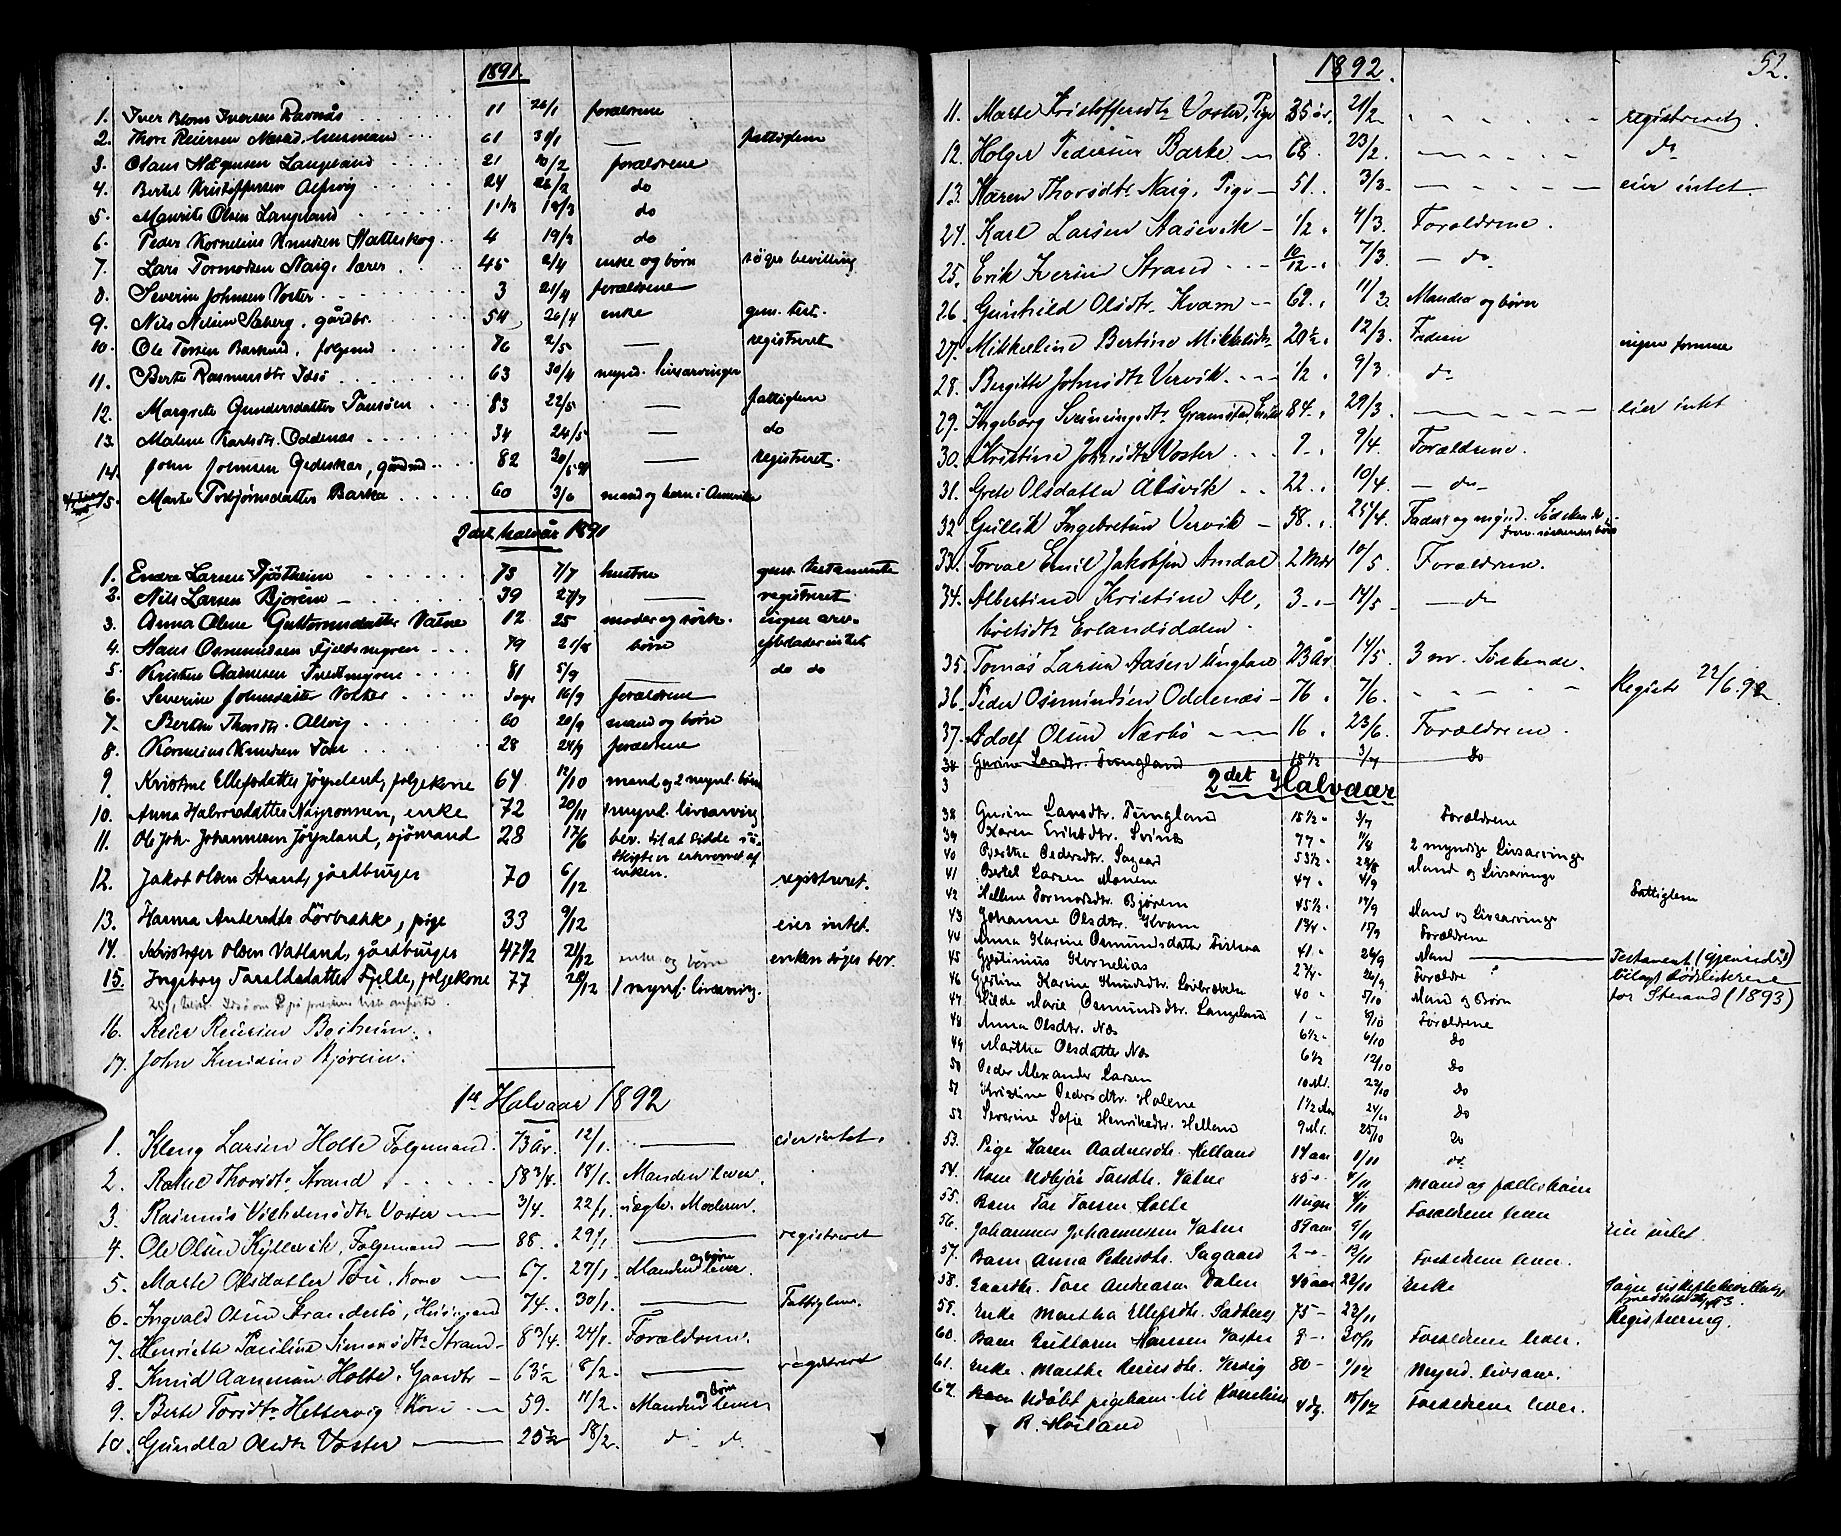 1891
1. Iver Blom Iversen Ravnås 11 26/1 forældrene
2. Thore Reiersen Mæsad, husmand 61 31/1 — fattiglem
3. Olaus Hågensen Langeland 21 10/2 forældrene
4. Bertel Kristoffersen Alsvig 24 26/2 do
5. Maurits Olsen Langeland 18/3 do
6. Peder Kornelius Knudsen Hatteskog 4 19/3 do
7. Lars Tormodsen Naig, lærer 45 2/4 enke og børn søger bevilling
8. Severin Johnsen Voster 3 21/4 forældrene
9. Nils Nilsen Sæberg, gårdbr. 54 26/4 enke gens. test.
10. Ole Torsen Barkud, folgemd 76 2/5 — registreret
11. Berte Rasmusdtr Idsø 63 30/4 mynd. livsarvinger
12. Margrete Gundersdatter Tausøen 83 22/5 — fattiglem
13. Malene Karlsdtr. Oddenæs 34 24/5 — do
14. John Johnsen Gedeskar, gårdmd 82 30/5 91 — registreret
15. Marte Torbjørnsdatter Barka 60 3/6 mand og børn i Amerika
2det halvår 1891
1. Endre Larsen Tjøstheim 73 7/7 hustru gens. testamente
2. Nils Larsen Bjøreim 39 27/7 — registreret
3. Anna Oline Guttormsdatter Vatne 12 25 moder og søsk. ingen arv
4. Hans Osmundsen Fjeldsmyren 79 21/8 børn efterlader intet
5. Kristen Aanensen Tvedtmyren 81 5/9 — do do
6. Severine Johnsdatter Voster dage 16/9 forældrene
7. Berthe Thorsdtr. Alsvig 60 20/9 mand og børn
8. Kornelius Knudsen Tou 28 24/9 forældrene
9. Kristine Ellefsdatter Jøgneland, folgekone 64 12/10 mand og 2 mynd. børn
10. Anna Halvorsdatter Nagronnen, enke 72 20/11 1 mynd. livsarving
11. Ole Joh. Johannesen Jøgnland, sjømand 28 17/6 bev. til at sidde i us-
skifte er erhvervet af
enken.
12. Jakob Olsen Strand, gårdbruger 70 6/12 registreret.
13. Hanna Andersdtr Lørbrække, pige 33 9/12 eier intet.
14. Kristofer Olsen Vatland, gårdbruger 47 1/2 21/12 enke og børn enken søger bev.
15. Ingeborg Taraldsdatter Fjelde, folgekone 77 28/12 1 mynd. livsarving.
16. Reier Reiersen Boiheim.
17. John Knudsen Bjøreim.
1ste Halvaar 1892
1. Kleng Larsen Holte Folgemand. 73 År. 12/1. — eier intet.
2. Rakel Thorsdtr Strand 58 3/4. 18/1. Manden lever.
3. Rasmus Vilhelmsdtr Voster 3/4. 22/1. uægte. Moderen.
4. Ole Olsen Kyllevik, Folgemand — 88. 29/1. — registreret
5. Marte Olsdatter Tou, Kone — 67. 27/1. Manden og børn lever.
6. Ingvald Olsen Strandestø, Husmand 74. 30/1. — Fattiglem.
7. Henriette Pauline Simonsdtr Strand — 8 3/4. 24/1. Forældrene.
8. Knud Aanensen Holte, Gaardbr — 63 1/2 8/2. — registreret
9. Berte Torsdtr Hettervig Kone — 59. 11/2. Manden og Børn lever
10. Gundla Olsdtr Voster — 25 1/2 18/2. do do
52.
1892.
11. Marte Kristoffersdtr Voster, Pige 35 år, 21/2 — registreret.
12. Holger Pedersen Barke — 68. 23/2. — do
13. Karen Thorsdtr Naig, Pige — 51. 3/3. — eier intet
24. Karl Larsen Aasevik — 1/2. 4/3. Forældrene.
25. Erik Iversen Strand 10/12. 7/3. — do
26. Gunhild Olsdtr. Kvam — 62. 11/3. Manden og børn
27. Mikkeline Bertine Mikkelsdtr 20 1/2. 12/3. Faderen ingen formue
28. Bergitte Johnsdtr Vervik 1/2. 9/3. do
29. Ingeborg Sveinungsdtr Gramstad, Enke 84. 29/3. — eier intet
30. Kristine Johnsdtr Voster 9/4. Forældrene.
31. Grete Olsdatter Alsvik 22. 10/4. — do
32. Gullik Ingebretsen Vervik — 58. 25/4. Fader og mynd. Sødskende
33. Torval Emil Jakobsen Amdal 2 Mdr 10/5. Forældrene.
34. Albertine Kristine Al, 3. 14/5 — do
bretsdtr Erlandsdalen.
35. Tomas Larsen Aasen Ungkarl 23 År 14/5. 3 m. Søskende.
36. Peder Osmundsen Oddenæs — 76. 7/6. Registr 22/6 92
37. Adolf Olsen Nærbø — 16. 23/6. Forældrene.
38 Gurine Larsdtr. Tungland 15 1/2 3/7 do
2det Halvaar
38 Gurine Larsdtr. Tungland 15 1/2 3/7 Forældrene
39 Karen Eriksdtr. Svines 77 11/8 2 myndige Livsarvinge
40 Berthe Pedersdtr. Sagaard 53 1/2 28/8 Mand og Livsarvinge
41 Bertel Larsen Monem 47 4/9
42 Hellene Tormodsdtr. Bjørem 45 1/2 14/9 Mand og Livsarvinge Fattiglem
43 Johanne Olsdtr. Kvam 13/4 15/9 Forældrene
44 Anna Karine Osmundsdatter Fiskaa 41 24/9 Mand — Testament (gjensidig)
45 Gjertinius Kornelias 2 3/4 26/9 Forældre bilagt dødslisterne
46 Gjertine Karine Knudsdtr. Lørbrække 40 5/10 Mand og Børn for Strand (1893)
47 Hilde Marie Osmundsdtr. Langeland 1 8/10 Forældrene
48 Anna Olsdtr. Næs 6 1/2 6/10 do
49 Martha Olsdatter Næs 6 1/2 12/10 do
50 Peder Alexander Larsen 10 Mr. 23/10 do
51 Kristine Pedersdtr. Holene 1 1/2 Aar 24/10 do
52 Severine Sofie Henriksdtr. Helland 9 Mr. 25/10 do
53. Pige Karen Aadnesdtr. Helland 14 aar 1/11 do
54. Kone Udbjør Tarsdtr. Vatne 85 4/11 Mand og fælles børn
55. Barn Tar Tarsen Holte 11 uger 4/11 Forældrene lever
56. Johannes Johannessen Vatne 89 aar 9/11 eier intet.
57. Barn Anna Petersdtr. Sagaard 2 13/11 Forældrene lever.
58. Gaardbr. Tore Andreasen Dalen 45 aar 22/11 Enke Søger uskiftebevilling
59. Enke Martha Ellefsdtr. Sadberg 75 — 23/11 Registrering.
60. Barn Guttorm Hansen Vaster 30/11 Forældrene lever.
61. Enke. Marthe Reiersdtr. Vervig 80 — 1/12 Mynd. livsarv.
62. Udøbt pigebarn til Kornelius 4 dg. 18/12 Forældrene lever.
R. Høiland